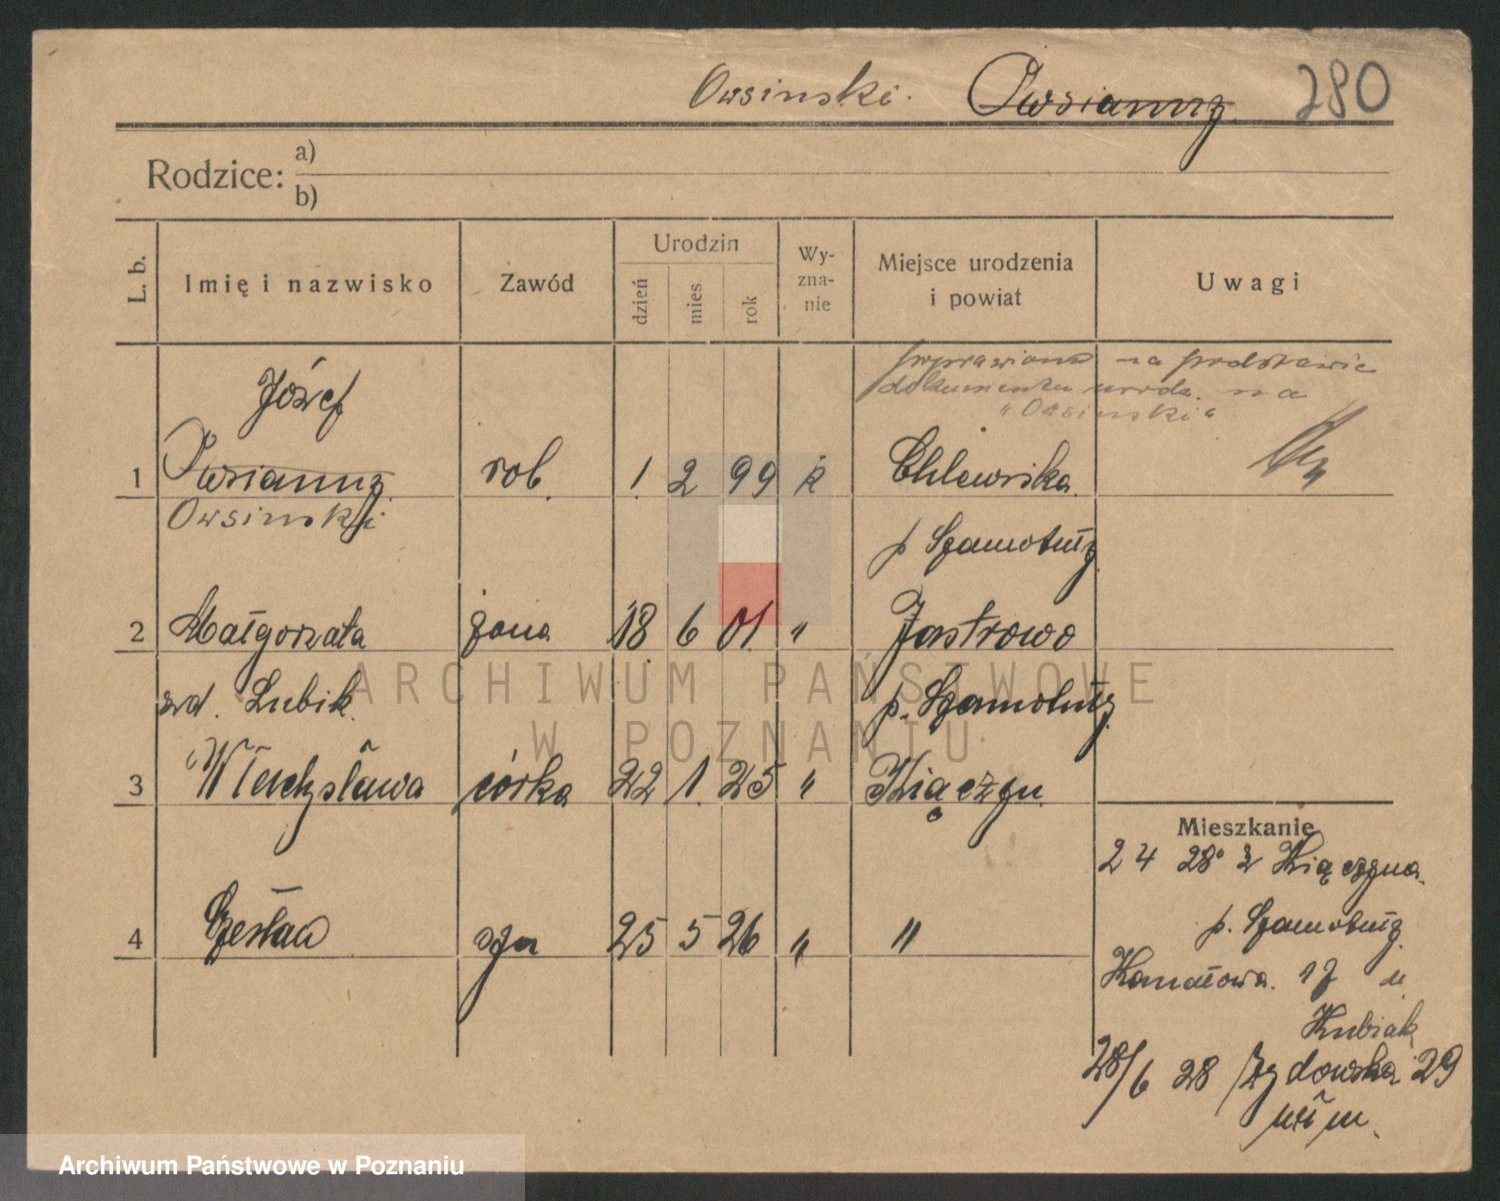 Owsinski. Owsianny 280
Rodzice: a)
b)
L. b. Imię i nazwisko Zawód Urodzin dzień mies. rok Wyznanie Miejsce urodzenia i powiat Uwagi
poprawiono na podstawie
dokumentu urodz. na
"Owsinski"
Józef
1 Owsianny rob. 1 2 99 k Chlewiska
Owsinski
p Szamotuły
2 Małgorzata żona 18 6 01 " Jastrowo
zd. Lubik p. Szamotuły
3 Wieczysława córka 22 1 25 " Kiączyn
Mieszkanie
2 4 28 z Kiączyna
p. Szamotuły
4 Czesław syn 25 5 26 " "
Kanałowa 17 u
Kubiak
28/6 28 Żydowska 29
ARCHIWUM PAŃSTWOWE
W POZNANIU
Archiwum Państwowe w Poznaniu